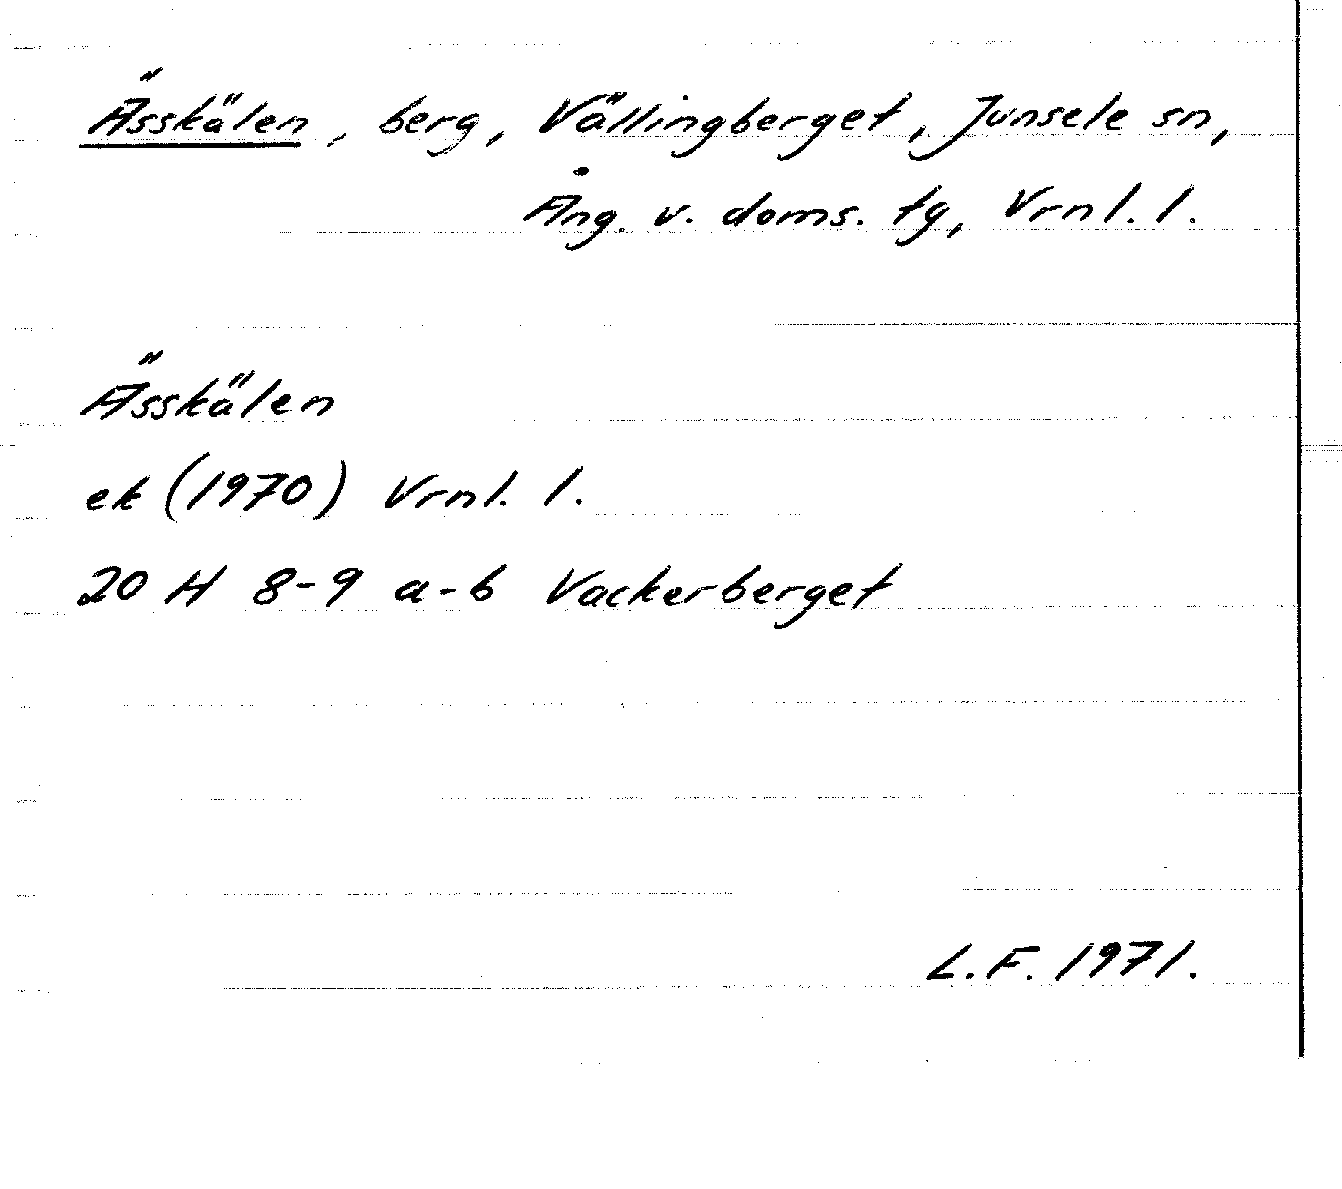 Ässkälen, berg, Vällingberget, Junsele sn,
Ång. v. doms. tg, Vrnl. l.
Ässkälen
ek (1970) Vrnl. l.
20 H 8-9 a-b Vackerberget
L.F. 1971.